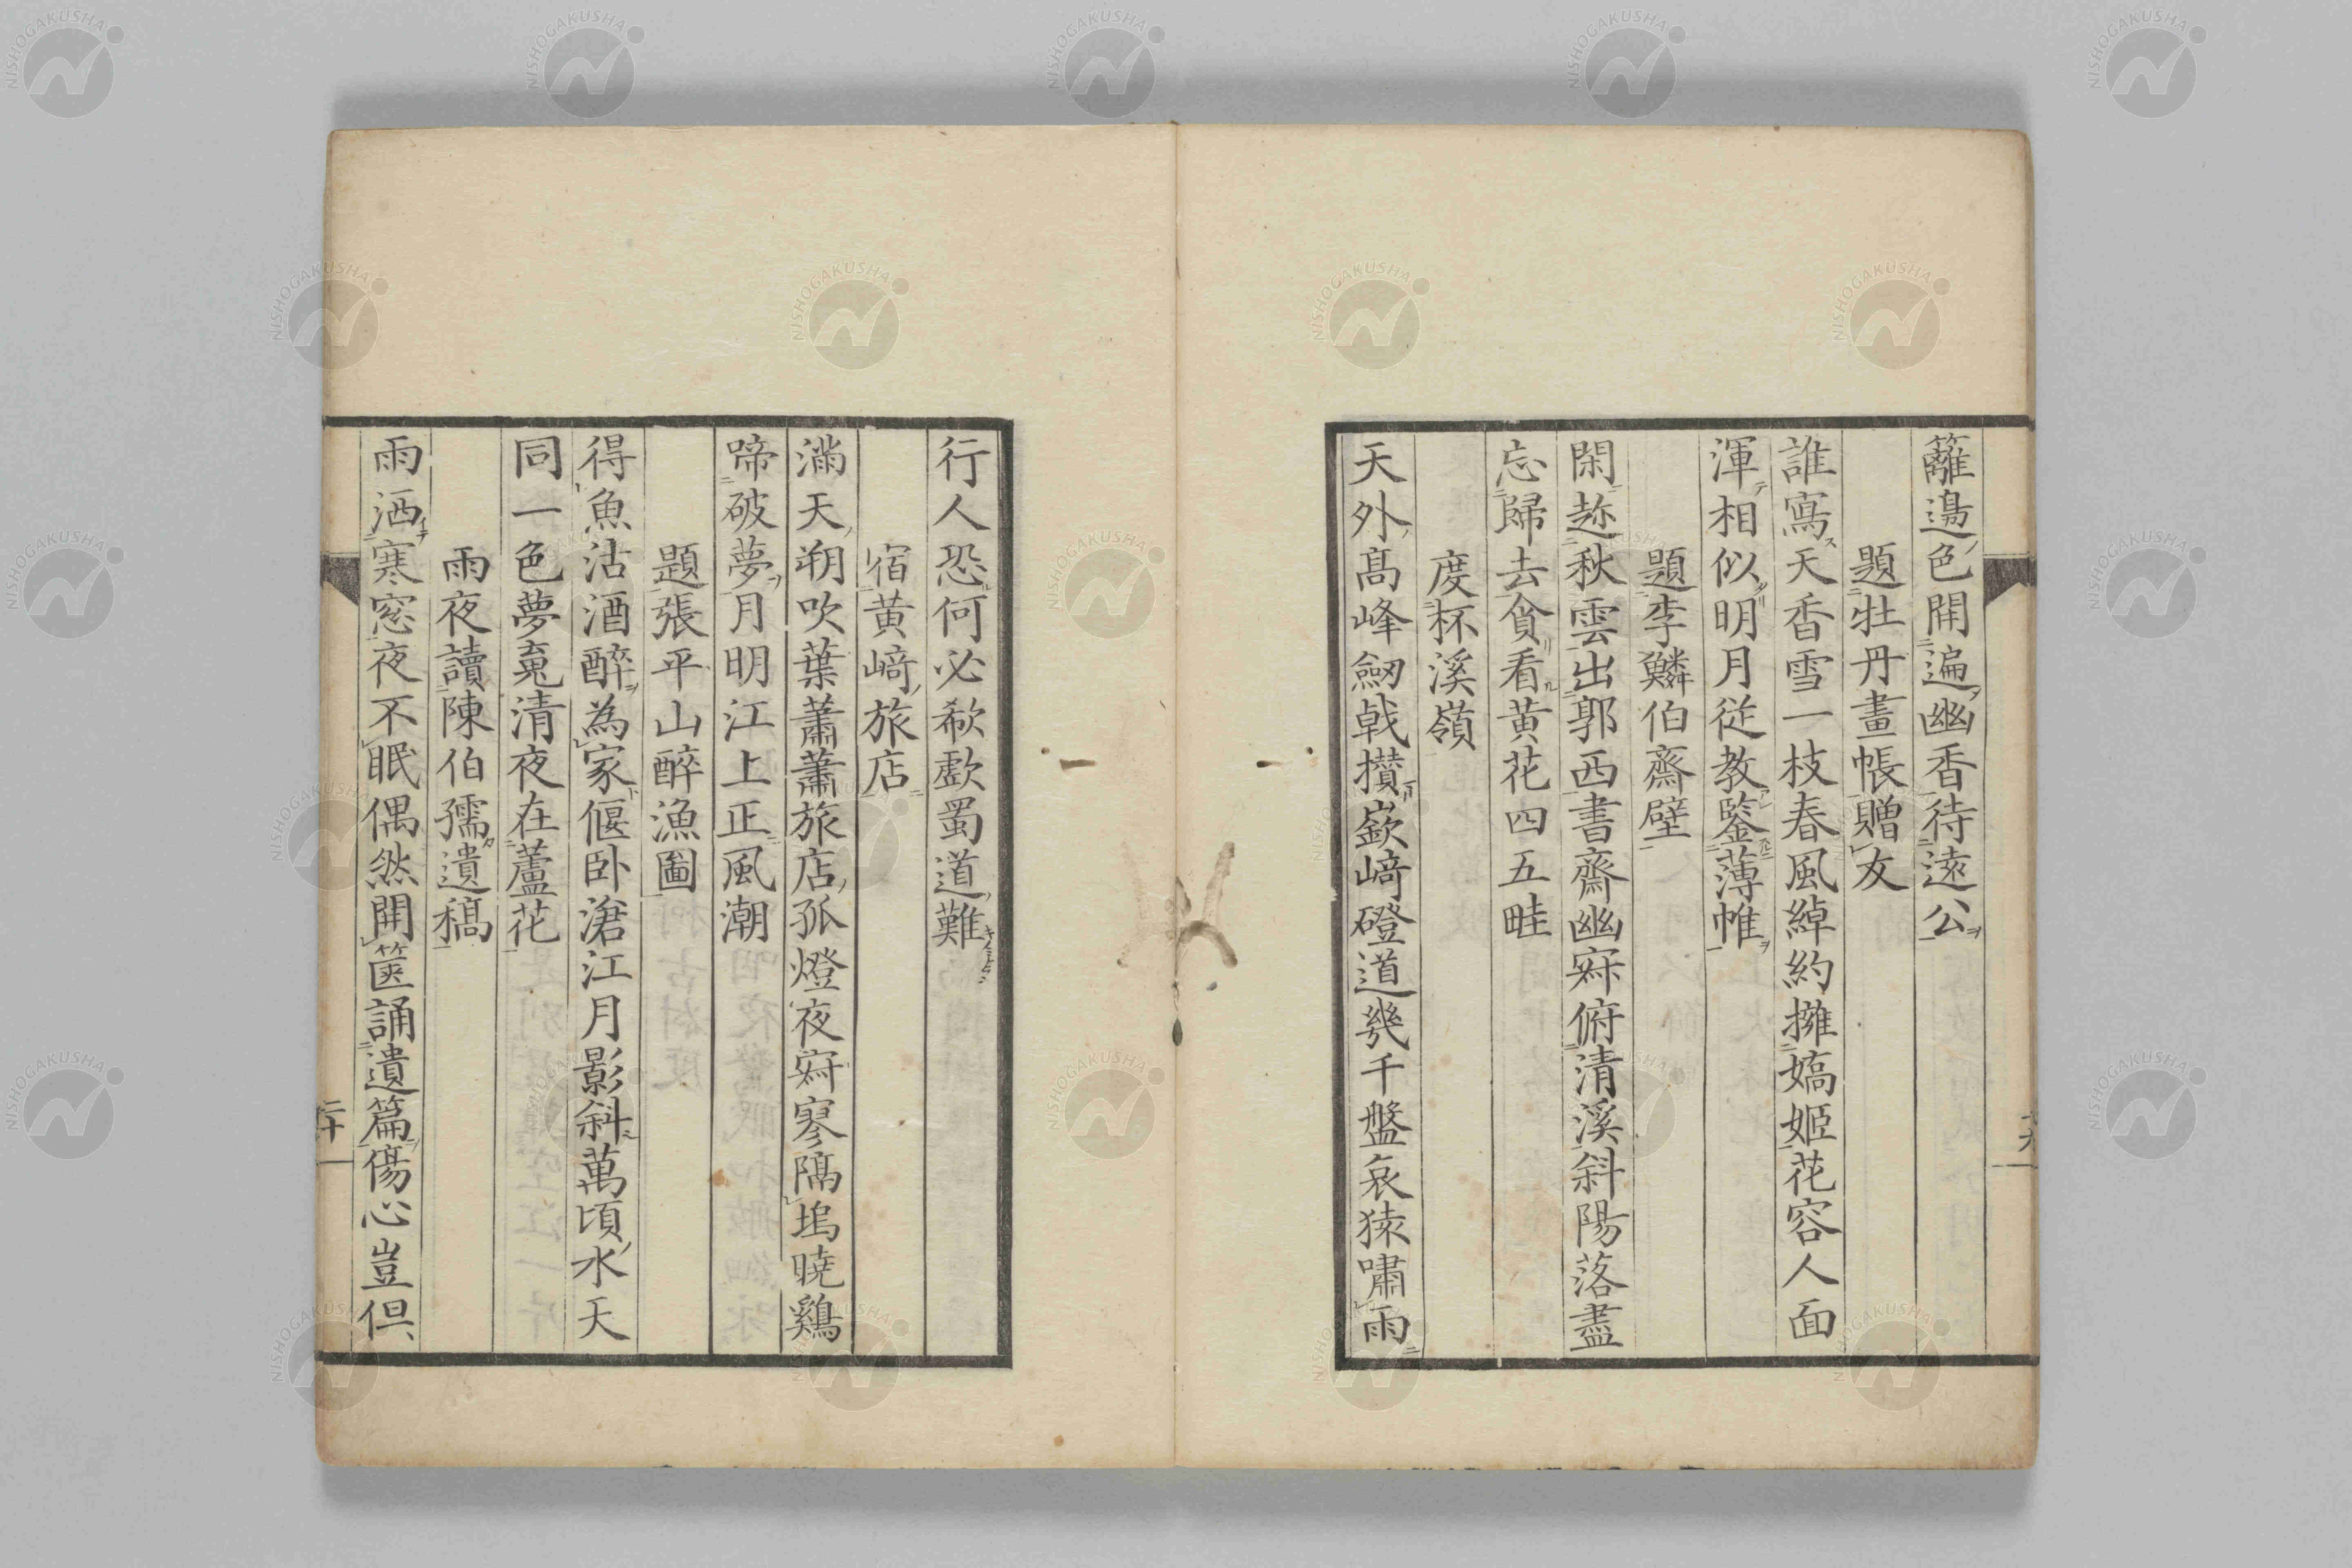 籬邊色開遍幽香待遠公
題牡丹畫帳贈友
誰寫天香雪一枝春風綽約擁嬌姬花容人面
渾相似明月従教鑒薄帷
題李鱗伯齋壁
閑趂秋雲出郭西書齋幽寂俯清溪斜陽落盡
忘歸去貪看黄花四五畦
度杯溪嶺
天外髙峰劒戟攅嶔﨑磴道幾千盤哀猿嘯雨
行人恐何必欷歔蜀道難
宿黄﨑旅店
滿天朔吹葉蕭蕭旅店孤燈夜寂寥隔塢曉鷄
啼破夢月明江上正風潮
題張平山醉漁圖
得魚沽酒醉為家偃卧滄江月影斜萬頃水天
同一色夢䰟清夜在蘆花
雨夜讀陳伯孺遺稿
雨洒寒窓夜不眠偶然開篋誦遺篇傷心豈但
NISHOGAKUSHA